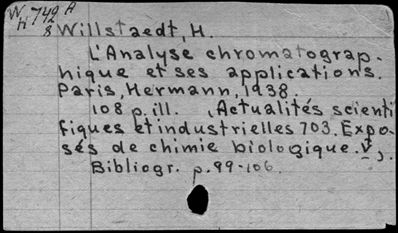 W 742
H 8
Willstaedt, H.
L'Analyse chromatograp-
hique et ses applications.
Paris, Hermann, 1938.
108 p. ill. (Actualités scienti
fiques et industrielles 703. Expo-
sés de chimie biologique. V),
Bibliogr. p. 99-106.